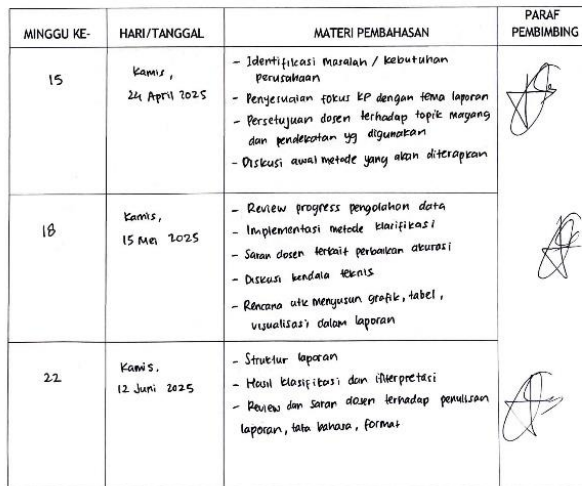 MINGGU KE-
HARI/TANGGAL
MATERI PEMBAHASAN
PARAF
PEMBIMBING
15
Kamis,
24 April 2025
- Identifikasi Masalah / kebutuhan
perusahaan
- Penyesuaian fokus KP dengan tema laporan
- Persetujuan dosen terhadap topik magang
dan pendekatan yg digunakan
- Diskusi awal metode yang akan diterapkan
18
Kamis,
15 Mei 2025
- Review progress pengolahan data
- Implementasi metode klarifikasi
- Saran dosen terkait perbaikan akurasi
- Diskusi kendala teknis
- Rencana utk menyusun grafik, tabel,
visualisasi dalam laporan
22
Kamis,
12 Juni 2025
- Struktur laporan
- Hasil klasifikasi dan interpretasi
- Review dan saran dosen terhadap penulisan
laporan, tata bahasa, format